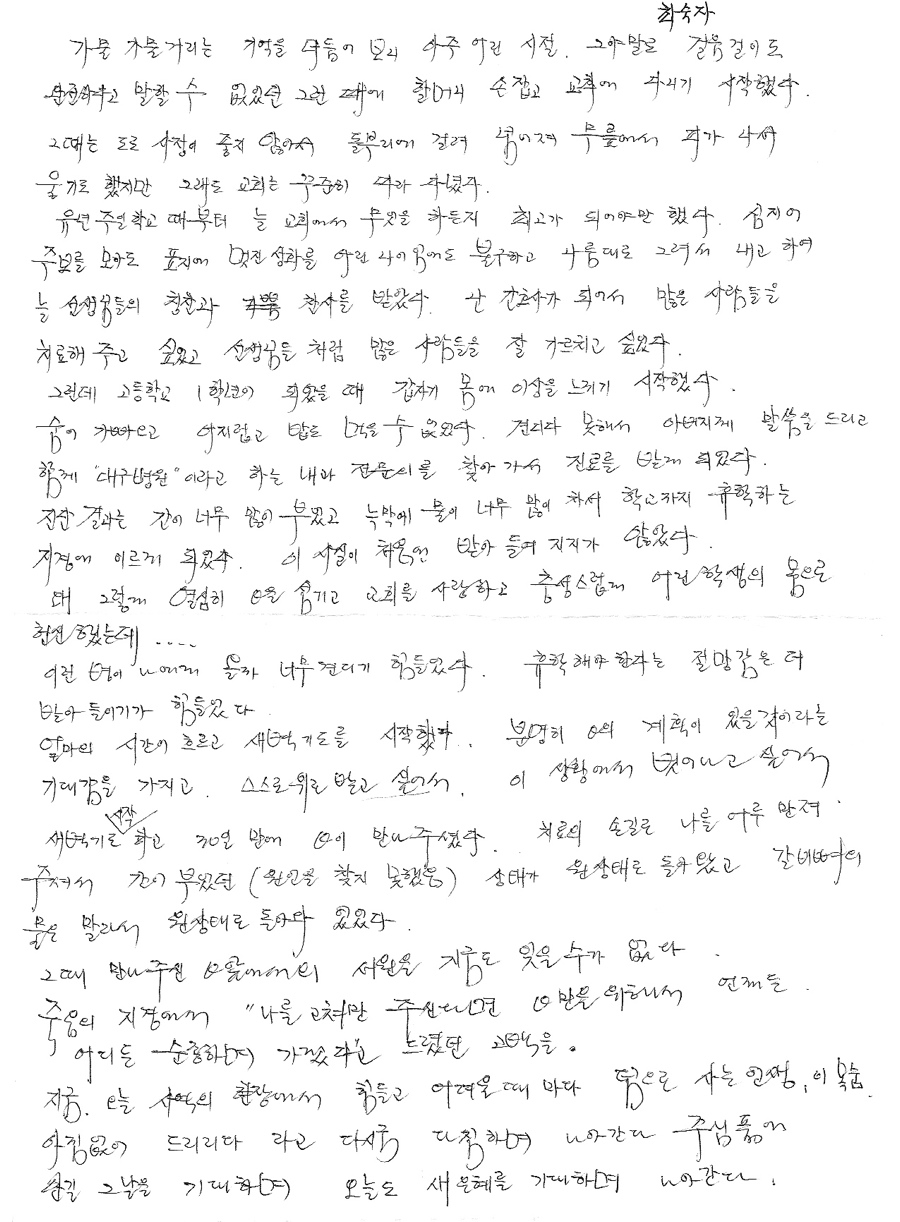 최숙자
가물 가물거리는 기억을 더듬어 보니 아주 어린 시절. 그야말로 걸음걸이도
완전하다고 말할 수 없었던 그런 때에 할머니 손잡고 교회에 다니기 시작했다.
그때는 도로 사정이 좋지 않아서 돌부리에 걸려 넘어져 무릎에서 피가 나서
울기도 했지만 그래도 교회는 꾸준히 따라 다녔다.
유년주일학교 때부터 늘 교회에서 무엇을 하든지 최고가 되어야만 했다. 심지어
주보를 모아도 표지에 멋진 성화를 어린 나이임에도 불구하고 나름대로 그려서 내고 하여
늘 선생님들의 칭찬과 찬사를 받았다. 난 간호사가 되어서 많은 사람들을
치료해 주고 싶었고 선생님들 처럼 많은 사람들을 잘 가르치고 싶었다.
그런데 고등학교 1학년이 되었을 때 갑자기 몸에 이상을 느끼기 시작했다.
숨이 가빠오고 어지럽고 밥도 먹을 수 없었다. 견디다 못해서 아버지께 말씀을 드리고
함께 "대구병원"이라고 하는 내과 전문의를 찾아 가서 진료를 받게 되었다.
진찰 결과는 간이 너무 많이 부었고 늑막에 물이 너무 많이 차서 학교까지 휴학하는
지경에 이르게 되었다. 이 사실이 처음엔 받아 들여 지지가 않았다.
왜 그렇게 열심히 을 섬기고 교회를 사랑하고 충성스럽게 어린 학생의 몸으로
헌신 했는데 ....
이런 병이 나에게 올까 너무 견디기 힘들었다. 휴학해야 한다는 절망감은 더
받아 들이기가 힘들었다.
얼마의 시간이 흐르고 새벽기도를 시작했다. 분명히 의 계획이 있을 것이라는
기대감을 가지고. 스스로 위로 받고 싶어서. 이 상황에서 벗어나고 싶어서
새벽기도 시작 하고 30일 만에 이 만나주셨다. 치료의 손길로 나를 어루 만져
주셔서 간이 부었던 (원인을 찾지 못했음) 상태가 원상태로 돌아 왔고 갈비뼈의
물은 말라서 원상태로 돌아와 있었다.
그때 만나주신 의 서원을 지금도 잊을 수가 없다.
죽음의 지경에서 "나를 고쳐만 주신다면 만을 위해서 언제든
어디든 순종하며 가겠다"고 드렸던 고백을.
지금. 오늘 사역의 현장에서 힘들고 어려울 때 마다 덤으로 사는 인생, 이 목숨
아낌없이 드리리다 라고 다시금 다짐하며 나아간다 주님품에
안길 그날을 기대하며 오늘도 새 은혜를 기대하며 나아간다.